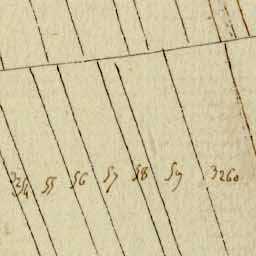 3254 55 56 57 58 59 3260